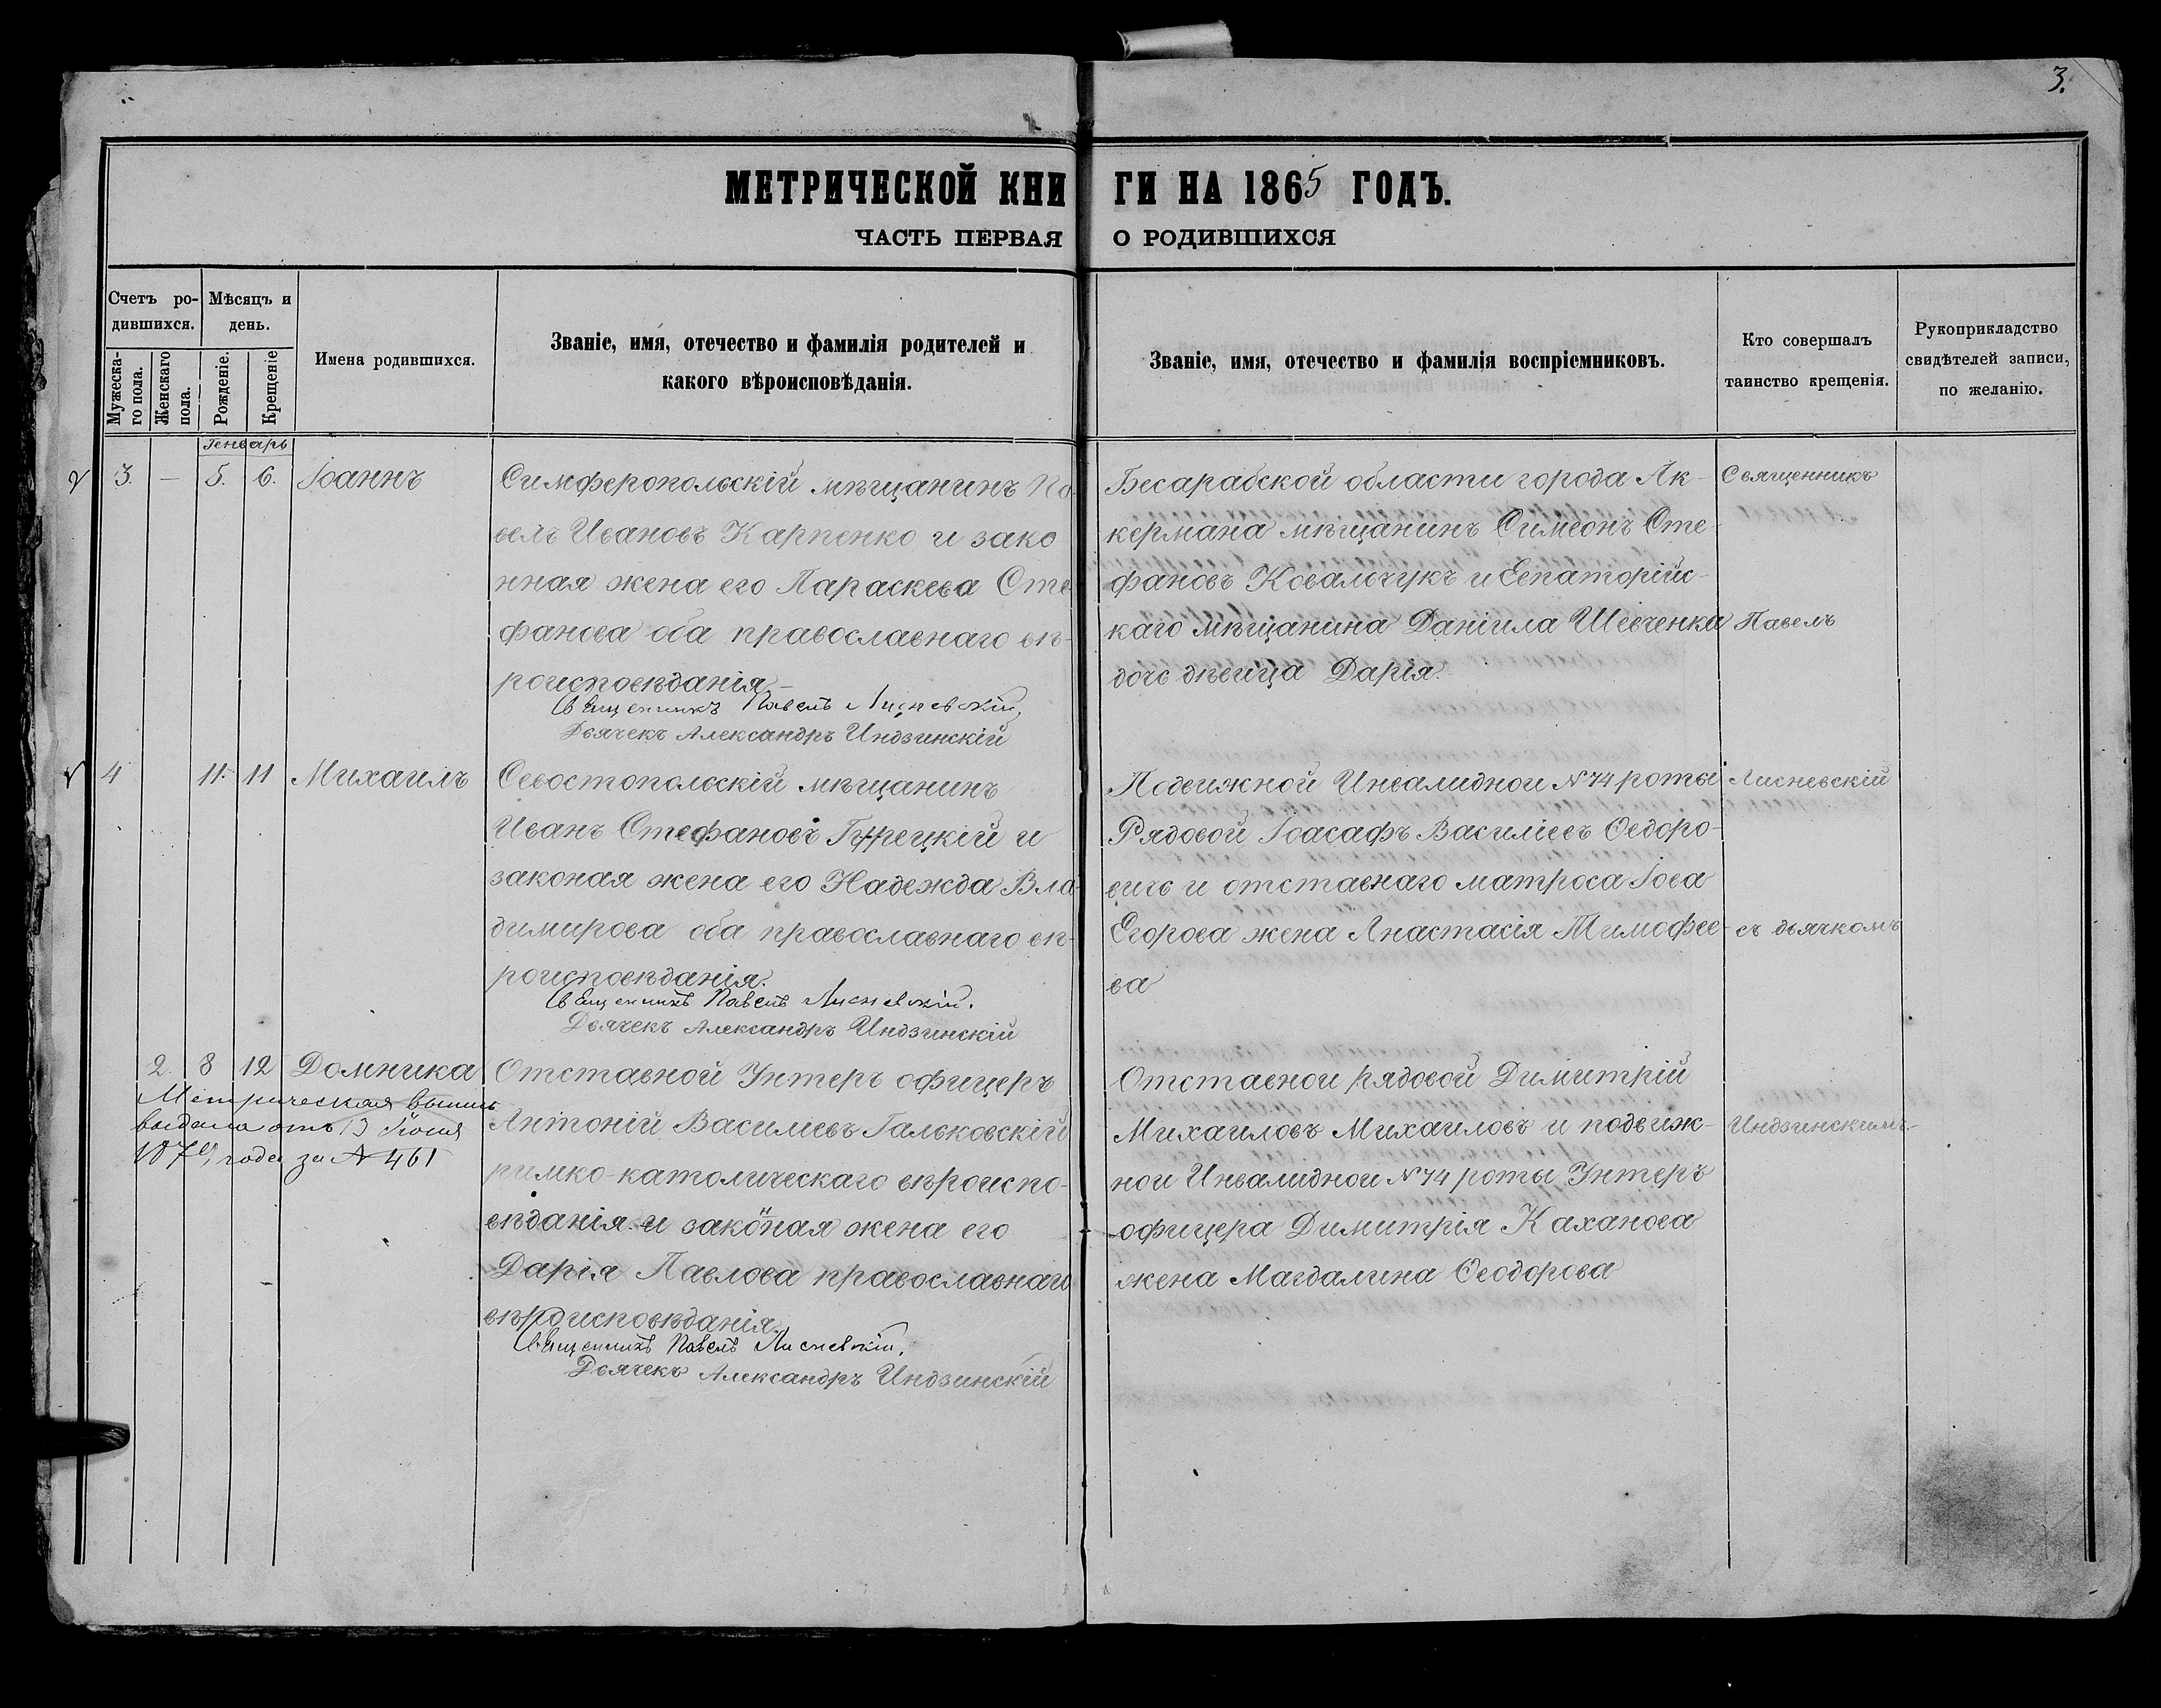 3.
МЕТРИЧЕСКОЙ КНИ ГИ НА 1865 ГОДЪ.
ЧАСТЬ ПЕРВАЯ О РОДИВШИХСЯ
Счетъ ро-
дившихся.
Мѣсяцъ и
день.
Мужеска-
го пола.
Женскаго
пола.
Рожденіе.
Крещеніе
Имена родившихся.
Званіе, имя, отечество и фамилія родителей и
какого вѣроисповѣданія.
Званіе, имя, отечество и фамилія воспріемниковъ.
Кто совершалъ
таинство крещенія.
Рукоприкладство
свидѣтелей записи,
по желанію.
Генварь
3. — 5. 6. Іоаннъ
Симферопольскій мѣщанинъ Па
велъ Ивановъ Карпенко и зако
нная жена его Параскева Сте
фанова оба православнаго вѣ-
роисповѣданія.
Священникъ Павелъ Лисневскій,
Дьячекъ Александръ Индзинскій
Бесарабской области города Ак-
кермана мѣщанинъ Симеонъ Сте-
фановъ Ковальчукъ и Евпаторійс-
каго мѣщанина Даніила Шевченка
дочь дѣвица Дарія.
Священникъ
Павелъ
4 11. 11 Михаилъ
Севостопольскій мѣщанинъ
Иванъ Стефановъ Грецкій и
законая жена его Надежда Вла-
димирова оба православнаго вѣ-
роисповѣданія.
Священникъ Павелъ Лисневскій.
Дьячекъ Александръ Индзинскій
Подвижной Инвалидной №74 роты
Рядовой Іоасафъ Василіевъ Федоро-
вичъ и отставнаго матроса Іова
Егорова жена Анастасія Тимофее-
ва
Лисневскій
съ дьячкомъ
2. 8 12 Домника
Метрическая выпись
выдана отъ 13 Іюня
года за № 461
Отставной Унтеръ офицеръ
Антоній Василіевъ Гальковскій
римко-католическаго вѣроиспо-
вѣданія и законая жена его
Дарія Павлова православнаго
вѣроисповѣданія.
Священникъ Павелъ Лисневскій.
Дьячекъ Александръ Индзинскій
Отставной рядовой Димитрій
Михаиловъ Михаиловъ и подвиж-
ной Инвалидной №74 роты Унтеръ
офицера Димитрія Каханова
жена Магдалина Феодорова
Индзинскимъ-